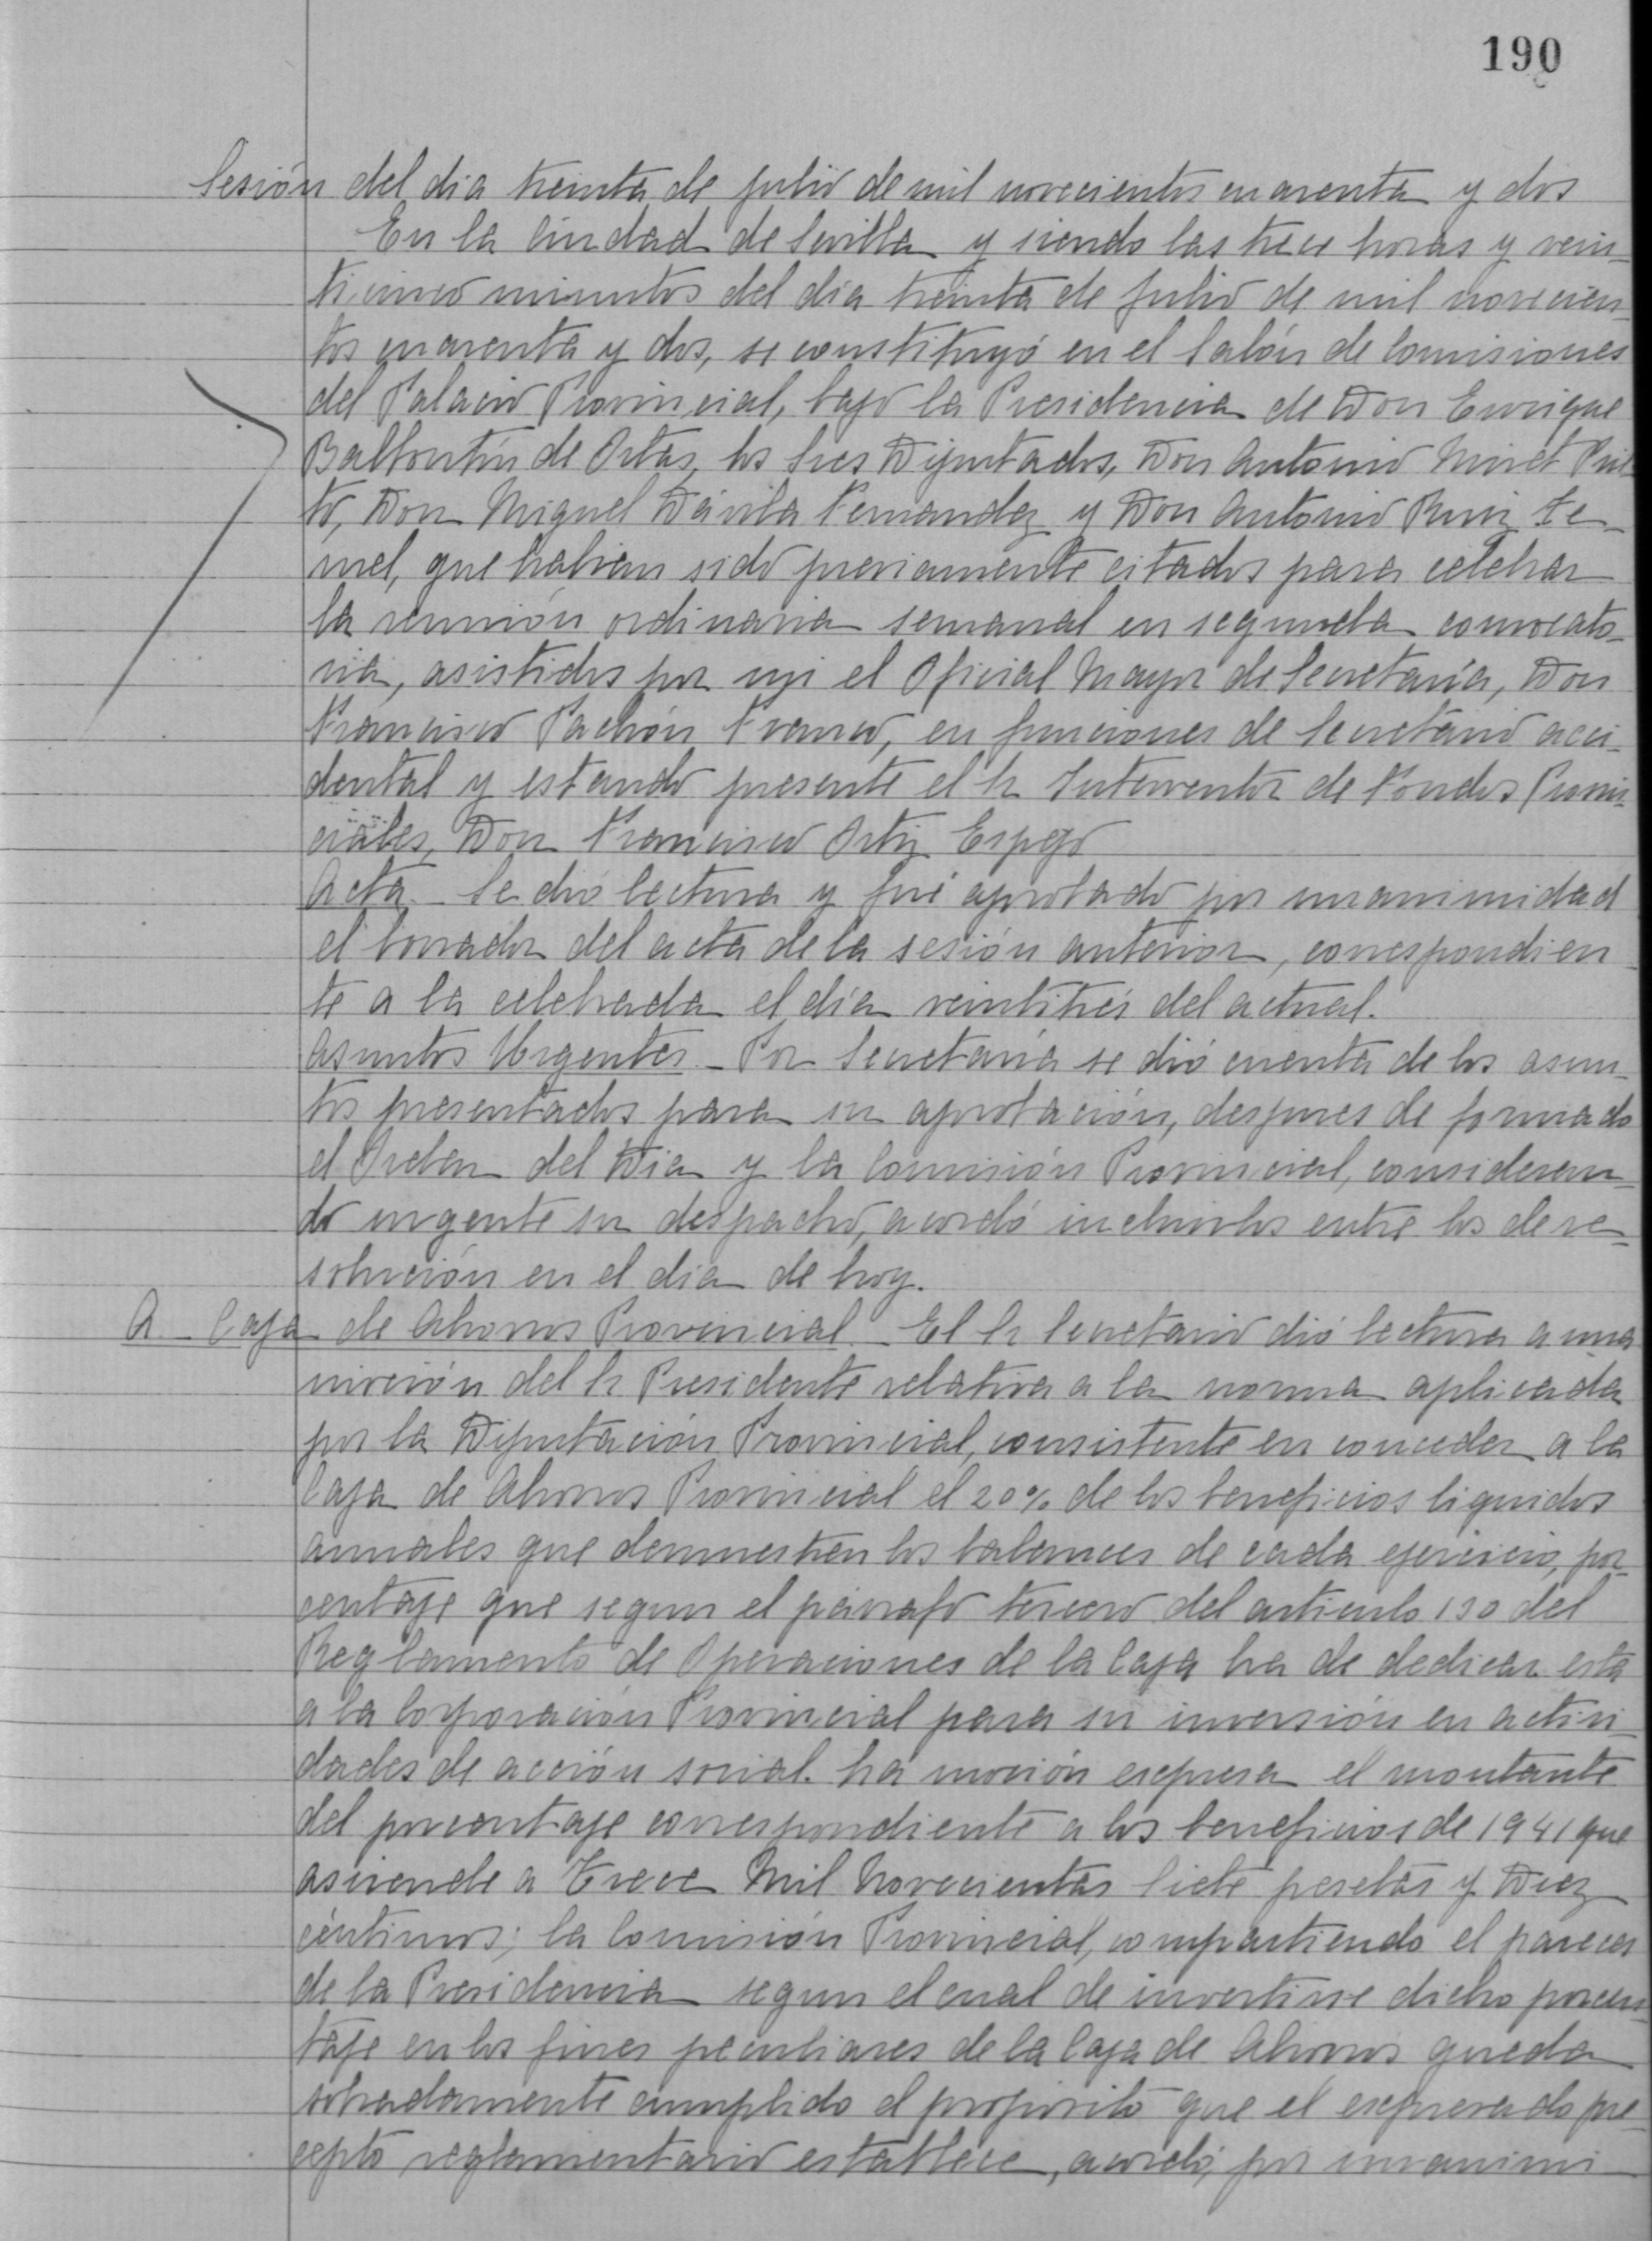 190
Sesión del dia treinta de julio de mil novecientos cuarenta y dos
En la Ciudad de Sevilla y siendo las trece horas y vein-
ticinco minutos del dia treinta de julio de mil novecien-
tos cuarenta y dos, se constituyó en el Salón de Comisiones
del Palacio Provincial, bajo la Presidencia de Don Enrique
Balbontín de Ortas, los Sres Diputados, Don Antonio Miret Prie
to, Don Miguel Dávila Fernandez y Don Antonio Ruiz Te-
ruel, que habian sido previamente citados para celebrar
la reunión ordinaria semanal en segunda convocato-
ria, asistidos por mi el Oficial Mayor de Secretaría, Don
Francisco Pachón Franco, en funciones de Secretario acci-
dental y estando presente el Sr Interventor de Fondos Provin-
ciales, Don Francisco Ortiz Espejo
Acta.- Se dió lectura y fué aprobado por unanimidad
el borrador del acta de la sesión anterior, correspondien
te a la celebrada el día veintitrés del actual.
Asuntos Urgentes.- Por Secretaría se dió cuenta de los asun-
tos presentados para su aprobación, despues de formado
el Orden del Dia y la Comisión Provincial, consideran-
do urgente su despacho, acordó incluirlos entre los de re-
solución en el dia de hoy.
A.- Caja de Ahorros Provincial.- El Sr Secretario dió lectura a una
moción del Sr Presidente relativa a la norma aplicada
por la Diputación Provincial, consistente en conceder a la
Caja de Ahorros Provincial el 20% de los beneficios liquidos
anuales que demuestren los balances de cada ejercicio, por-
centaje que segun el párrafo tercero del articulo 130 del
Reglamento de Operaciones de la Caja ha de dedicar esta
a la Corporación Provincial para su inversión en activi-
dades de acción social. La moción expresa el montante
del porcentaje correspondiente a los beneficios de 1941 que
asciende a Trece Mil Novecientas Siete pesetas y Diez
céntimos; la Comisión Provincial, compartiendo el parecer
de la Presidencia segun el cual de invertirse dicho porcen-
taje en los fines peculiares de la Caja de Ahorros queda
sobradamente cumplido el proposito que el expresado pre-
cepto reglamentario establece, acordó, por unanimi-